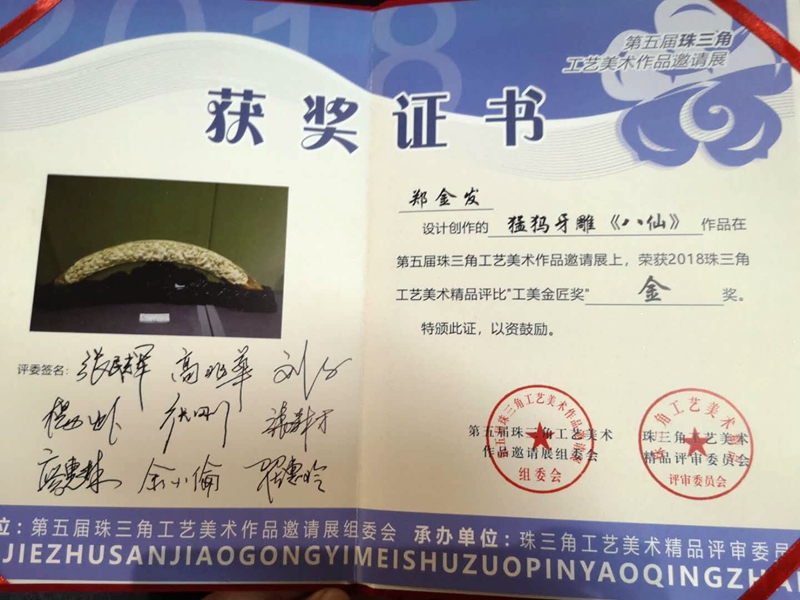 2018
第五届珠三角
工艺美术作品邀请展
获奖证书
郑金发
设计创作的 猛犸牙雕《八仙》 作品在
第五届珠三角工艺美术作品邀请展上，荣获2018珠三角
工艺美术精品评比"工美金匠奖" 金 奖。
特颁此证，以资鼓励。
评委签名：张民辉 高兆华 刘
余小倫
第五届珠三角工艺美术
作品邀请展组委会
组委会
珠三角工艺美术
精品评审委员会
评审委员会
位：第五届珠三角工艺美术作品邀请展组委会 承办单位：珠三角工艺美术精品评审委员
JIEZHUSANJIAOGONGYIMEISHUZUOPINYAOQINGZHA